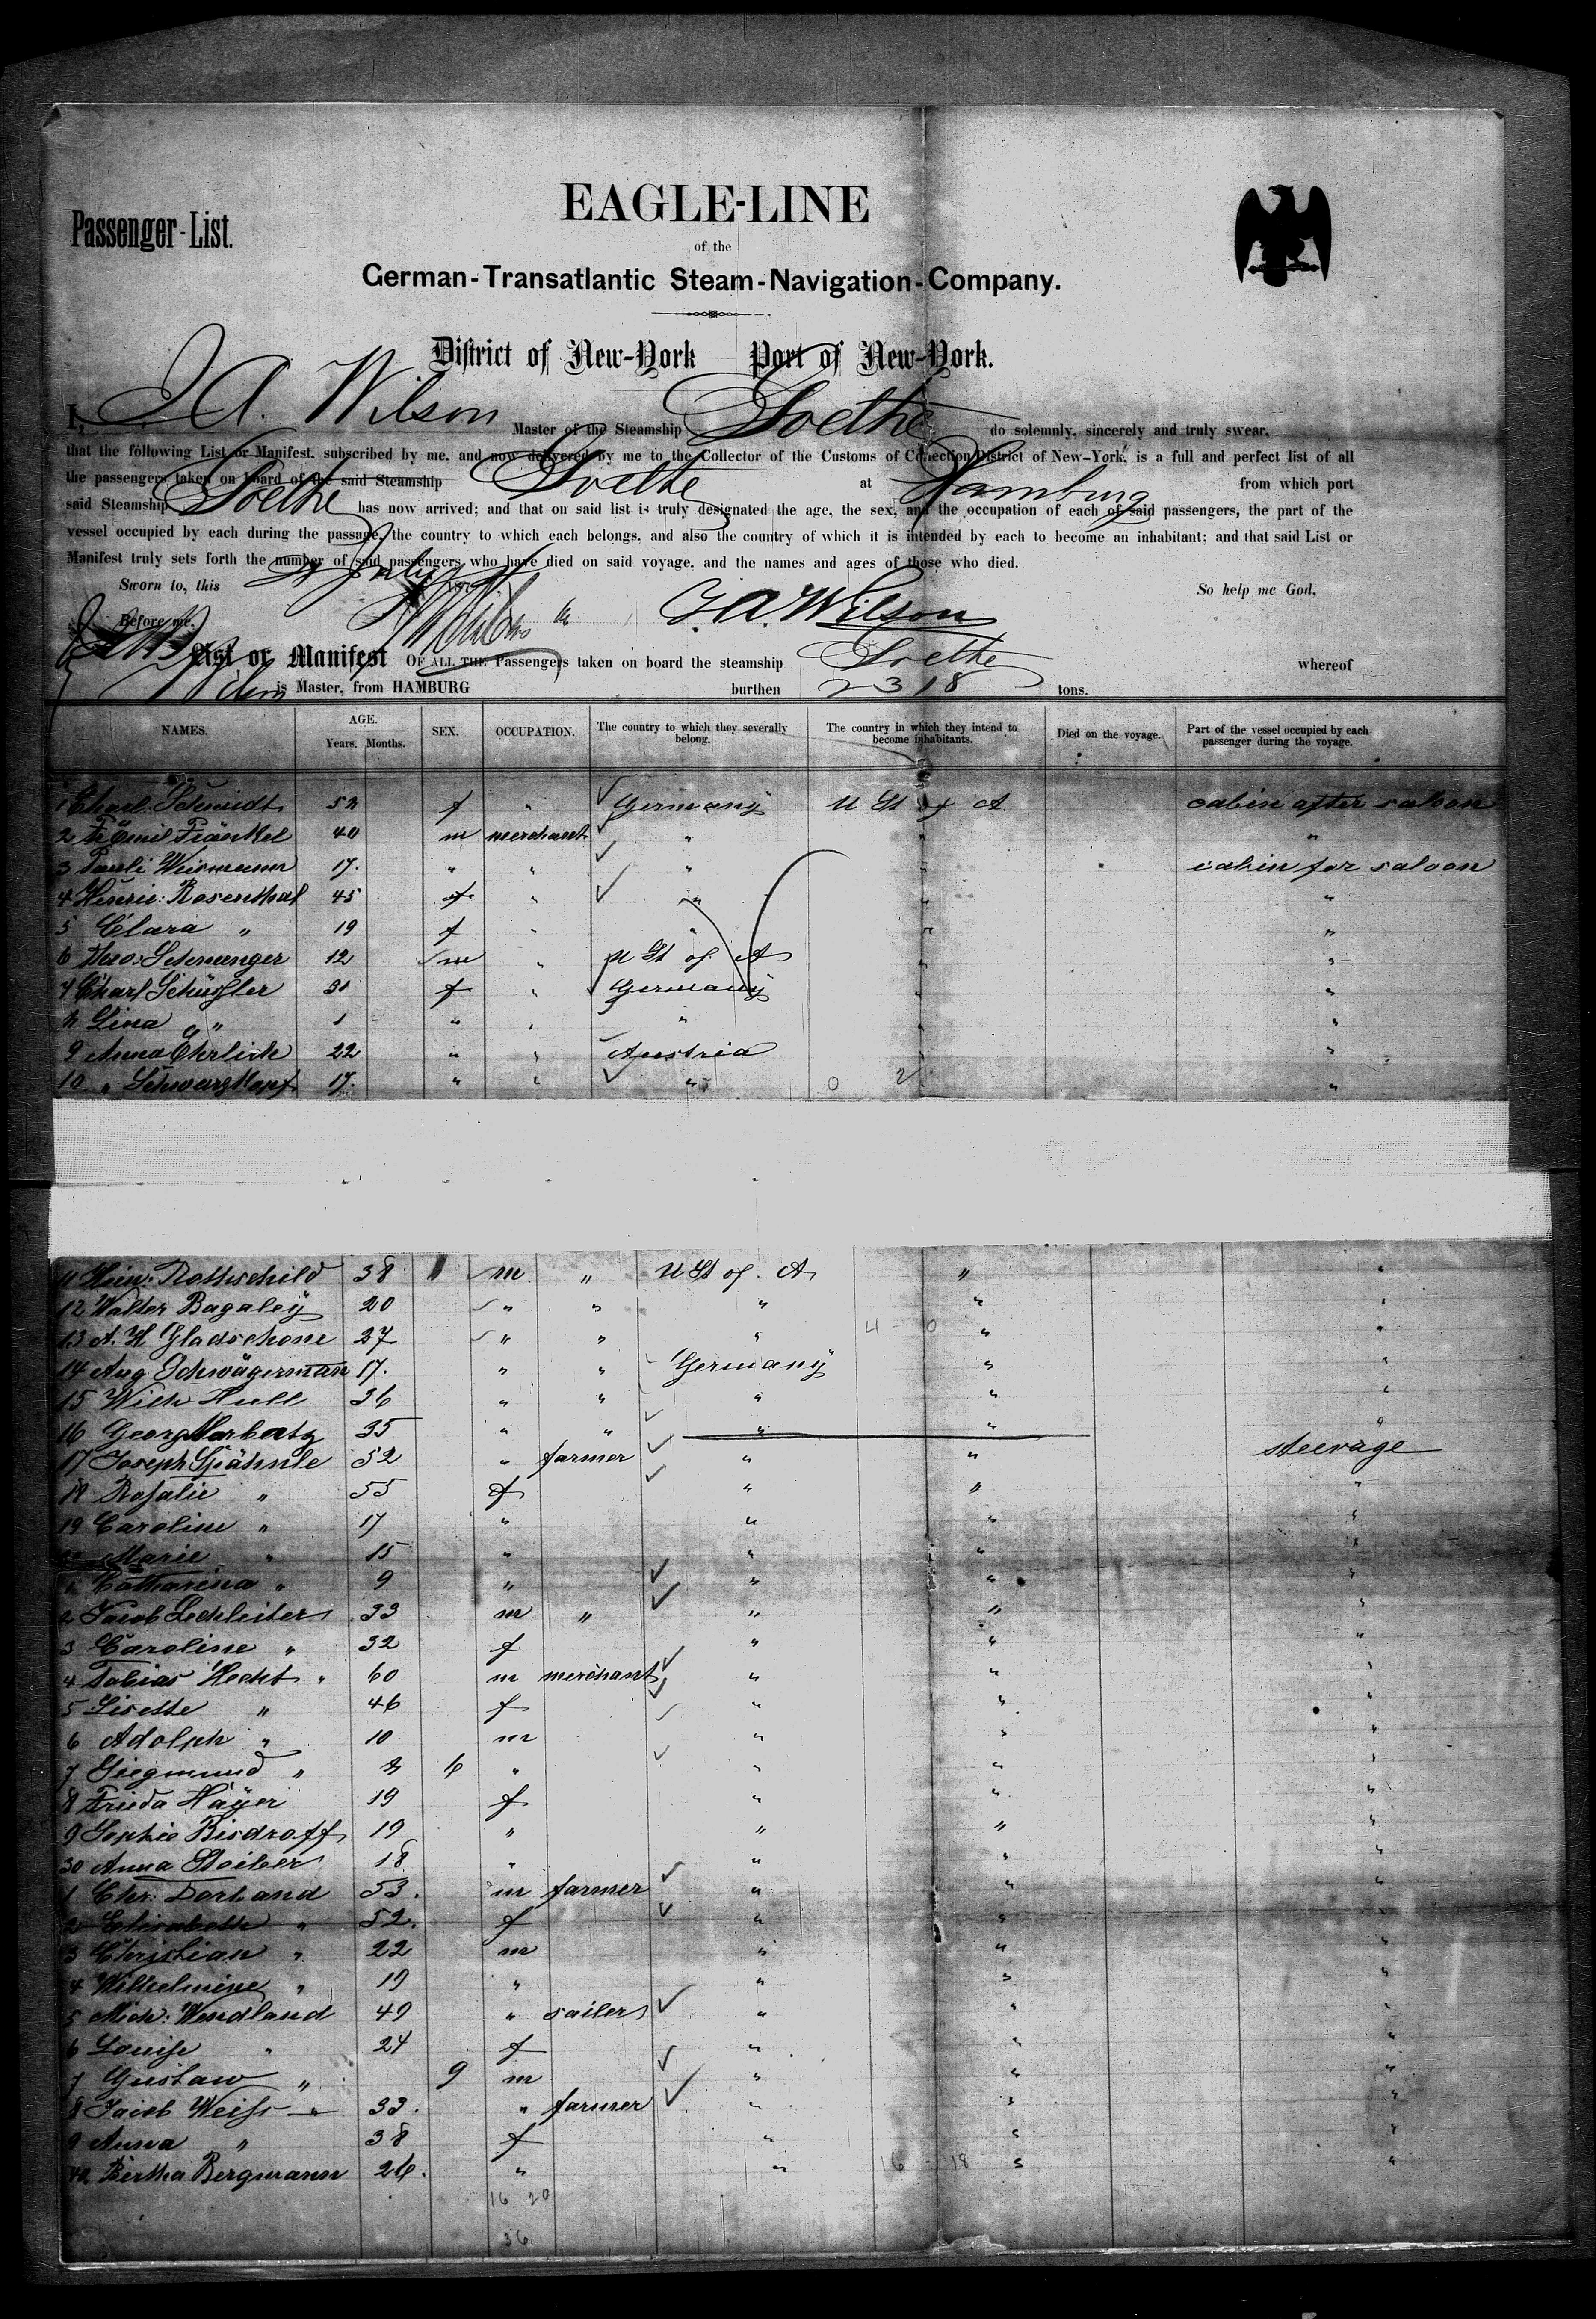 Passenger-List.
EAGLE-LINE
of the
German-Transatlantic Steam-Navigation-Company.
District of New-York Port of New-York.
I, J. A. Wilson Master of the Steamship Goethe do solemnly, sincerely and truly swear,
that the following List or Manifest, subscribed by me, and now delivered by me to the Collector of the Customs of Collection District of New-York, is a full and perfect list of all
the passengers taken on board of the said Steamship Goethe at Hamburg from which port
said Steamship Goethe has now arrived; and that on said list is truly designated the age, the sex, and the occupation of each of said passengers, the part of the
vessel occupied by each during the passage, the country to which each belongs, and also the country of which it is intended by each to become an inhabitant; and that said List or
Manifest truly sets forth the number of said passengers who have died on said voyage, and the names and ages of those who died.
Sworn to, this July 187 So help me God,
Before me, J. A. Wilson
List or Manifest OF ALL THE Passengers taken on board the steamship Goethe whereof
Wilson is Master, from HAMBURG burthen 2318 tons.
NAMES. AGE. Years. Months. SEX. OCCUPATION. The country to which they severally belong. The country in which they intend to become inhabitants. Died on the voyage. Part of the vessel occupied by each passenger during the voyage.
1 Charl. Schmidt 52 f " Germany U St of A cabin after saloon
2 Emil Fränkel 40 m merchant " " "
3 Pauli Weismann 17. " " " " cabin for saloon
4 Henrie: Rosenthal 45 f " " " "
5 Clara " 19 f " " " "
6 Theo: Schwanger 12 m " U St of A " "
7 Charl Schüssler 31 f " Germany " "
8 Lina " 1 " " " " "
9 Anna Ehrlich 22 " " Austria " "
10 " Schwarzkopf 17. " " " 0 2 " "
11 Hein: Rothschild 38 m " U St of A " "
12 Walter Bagaley 20 " " " " "
13 A. H Gladschone 27 " " " 4 - 0 " "
14 Aug Schwägerman 17. " " Germany " "
15 Wich Hull 36 " " " " "
16 Georg Marbatz 35 " " " " "
17 Joseph Spähnle 52 " farmer " " steerage
18 Rosalie " 55 f " " "
19 Caroline " 17 " " " "
20 Marie " 15 " " " "
1 Catharina " 9 " " " "
2 Jacob Lechleiter 33 m " " " "
3 Caroline " 32 f " " "
4 Tobias Hecht " 60 m merchant " " "
5 Lisette " 46 f " " "
6 Adolph " 10 m " " "
7 Siegmund " 6 " " " "
8 Frieda Häyer 19 f " " "
9 Sophie Bisdraff 19 " " " "
30 Anna Stoiber 18 " " " "
1 Chr: Dorland 53. m farmer " " "
2 Elisabeth " 52. f " " "
3 Christian " 22 m " " "
4 Wilhelmine " 19 " " " "
5 Mich: Wendland 49 " sailer " " "
6 Louise " 24 f " " "
7 Gustaw " 9 m " " "
8 Jacob Weiss " 33. " farmer " " "
9 Anna " 38 f " " "
40 Bertha Bergmann 26. " " 16 - 18 " "
16 20
36